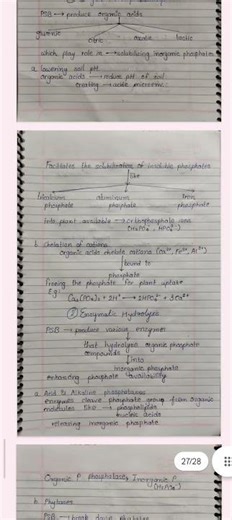 PSB → produce organic acids
gluconic citric oxalic lactic
which play role in → solubilizing inorganic phosphates
a. lowering soil pH
organic acids → reduce pH of soil
creating → acidic microenv.
Facilitates the solubilization of insoluble phosphates
like
aluminum iron
phosphate phosphate phosphate
Into plant available → orthophosphate ions
(H₂PO₄⁻, HPO₄²⁻)
b. chelation of cations
organic acids chelate cations (Ca²⁺, Fe³⁺, Al³⁺)
bound to
phosphate
freeing the phosphate for plant uptake
E.g.
Ca₃(PO₄)₂ + 2H⁺ → 2HPO₄²⁻ + 3Ca²⁺
② Enzymatic Hydrolysis
PSB → produce various enzymes
that hydrolyze organic phosphate
compounds
into
inorganic phosphate
enhancing phosphate availability
a. Acid & Alkaline phosphatases
enzymes cleave phosphate group from organic
molecules like → phospholipids
nucleic acids
releasing inorganic phosphate
27/28
Organic P phosphatases Inorganic P
b. Phytases
PSB → break down phytates